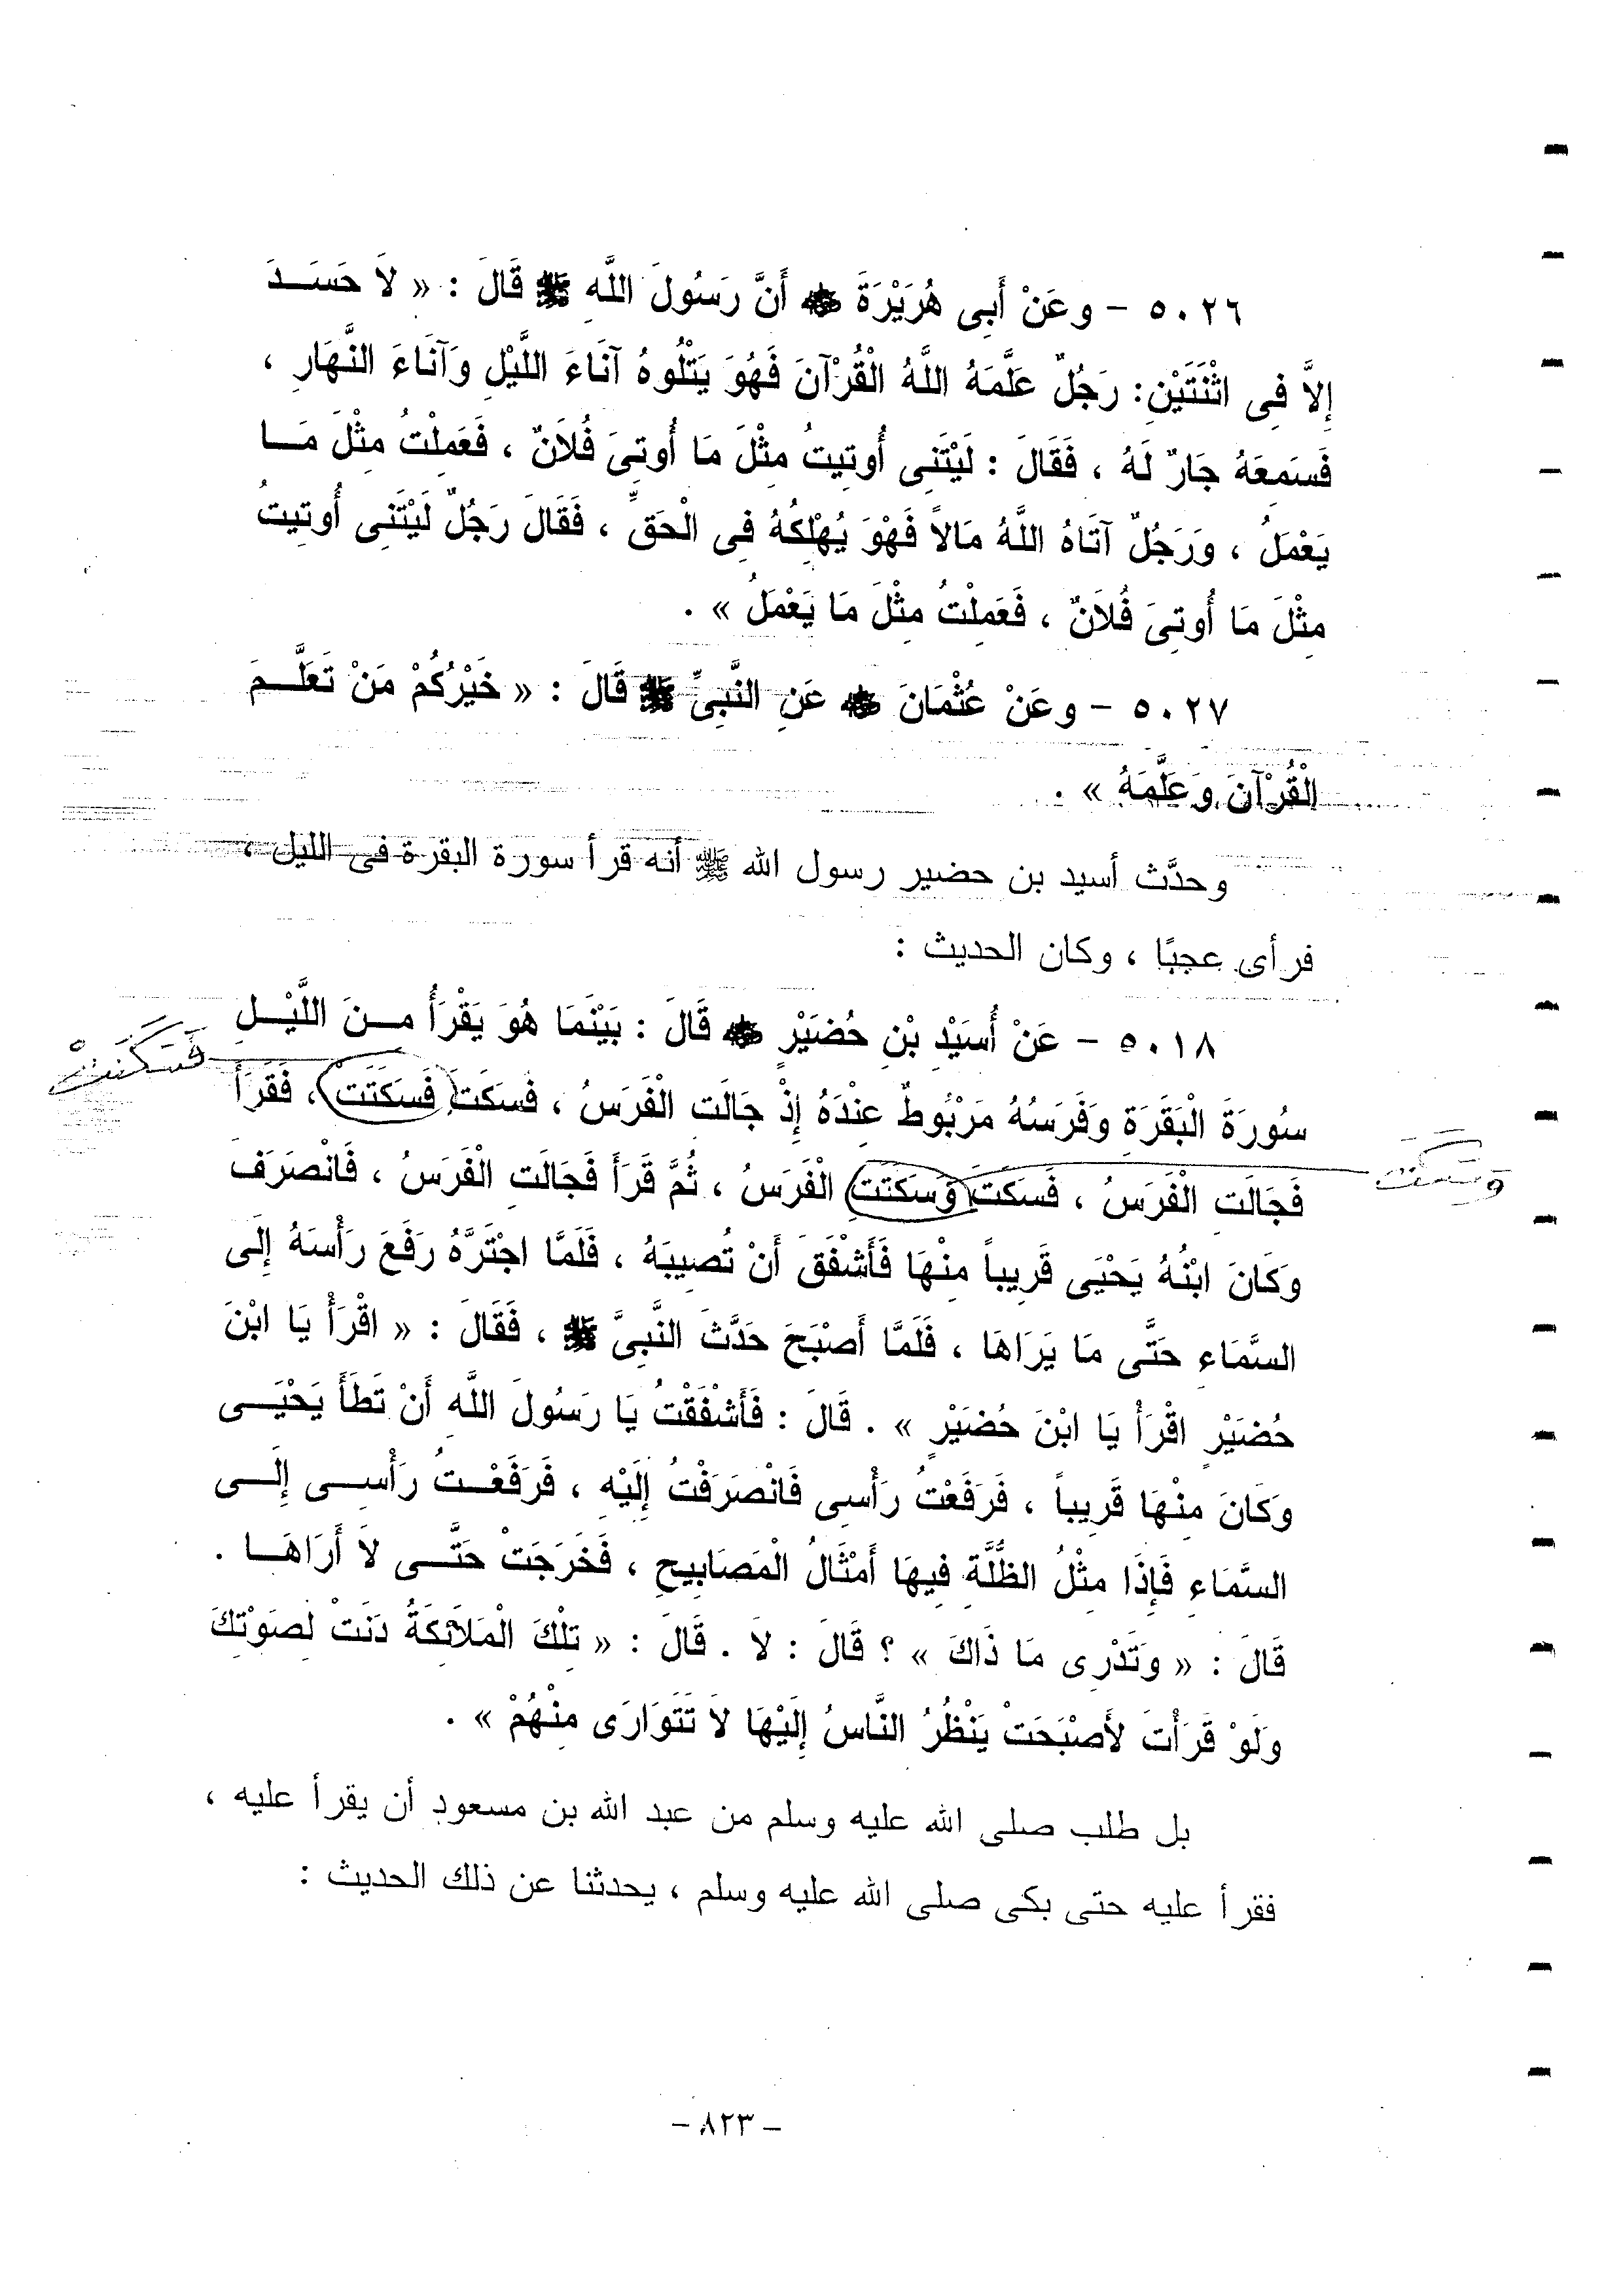 ٥٠٢٦ - وعَنْ أَبِى هُرَيْرَةَ ﷺ أَنَّ رَسُولَ اللَّهِ ﷺ قَالَ : « لاَ حَسَــدَ
إِلاَّ فِى اثْنَتَيْنِ: رَجُلٌ عَلَّمَهُ اللَّهُ الْقُرْآنَ فَهُوَ يَتْلُوهُ آنَاءَ اللَّيْلِ وَآنَاءَ النَّهَارِ ،
فَسَمِعَهُ جَارٌ لَهُ ، فَقَالَ : لَيْتَنِى أُوتِيتُ مِثْلَ مَا أُوتِىَ فُلاَنٌ ، فَعَمِلْتُ مِثْلَ مَــا
يَعْمَلُ ، وَرَجُلٌ آتَاهُ اللَّهُ مَالاً فَهْوَ يُهْلِكُهُ فِى الْحَقِّ ، فَقَالَ رَجُلٌ لَيْتَنِى أُوتِيتُ
مِثْلَ مَا أُوتِىَ فُلاَنٌ ، فَعَمِلْتُ مِثْلَ مَا يَعْمَلُ » .
٥٠٢٧ - وعَنْ عُثْمَانَ عَنِ النَّبِىِّ ﷺ قَالَ : « خَيْرُكُمْ مَنْ تَعَلَّــمَ
الْقُرْآنَ وَعَلَّمَهُ » .
وحدَّث أسيد بن حضير رسول الله ﷺ أنه قرأ سورة البقرة فى الليل ،
فرأى عجبًا ، وكان الحديث :
٥٠١٨ - عَنْ أُسَيْدِ بْنِ حُضَيْرٍ قَالَ : بَيْنَمَا هُوَ يَقْرَأُ مــنَ اللَّيْــلِ
فَسَكَنَتْ
سُورَةَ الْبَقَرَةِ وَفَرَسُهُ مَرْبُوطٌ عِنْدَهُ إِذْ جَالَت الْفَرَسُ ، فَسَكَتَ فَسَكَتَتْ ، فَقَرَأَ
وَسَكَنَت
فَجَالَتِ الْفَرَسُ ، فَسَكَتَ وَسَكَتَتِ الْفَرَسُ ، ثُمَّ قَرَأَ فَجَالَتِ الْفَرَسُ ، فَانْصَرَفَ
وَكَانَ ابْنُهُ يَحْيَى قَرِيباً مِنْهَا فَأَشْفَقَ أَنْ تُصِيبَهُ ، فَلَمَّا اجْتَرَّهُ رَفَعَ رَأْسَهُ إِلَى
السَّمَاءِ حَتَّى مَا يَرَاهَا ، فَلَمَّا أَصْبَحَ حَدَّثَ النَّبِىَّ ﷺ ، فَقَالَ : « اقْرَأْ يَا ابْنَ
حُضَيْرٍ اقْرَأْ يَا ابْنَ حُضَيْرٍ » . قَالَ : فَأَشْفَقْتُ يَا رَسُولَ اللَّهِ أَنْ تَطَأَ يَحْيَــى
وَكَانَ مِنْهَا قَرِيباً ، فَرَفَعْتُ رَأْسِى فَانْصَرَفْتُ إِلَيْهِ ، فَرَفَعْــتُ رَأْسِــى إِلَــى
السَّمَاءِ فَإِذَا مِثْلُ الظُّلَّةِ فِيهَا أَمْثَالُ الْمَصَابِيحِ ، فَخَرَجَتْ حَتَّــى لاَ أَرَاهَــا .
قَالَ : « وَتَدْرِى مَا ذَاكَ » ؟ قَالَ : لاَ . قَالَ : « تِلْكَ الْمَلاَئِكَةُ دَنَتْ لِصَوْتِكَ
وَلَوْ قَرَأْتَ لأَصْبَحَتْ يَنْظُرُ النَّاسُ إِلَيْهَا لاَ تَتَوَارَى مِنْهُمْ » .
بل طلب صلى الله عليه وسلم من عبد الله بن مسعود أن يقرأ عليه ،
فقرأ عليه حتى بكى صلى الله عليه وسلم ، يحدثنا عن ذلك الحديث :
- ٨٢٣ -